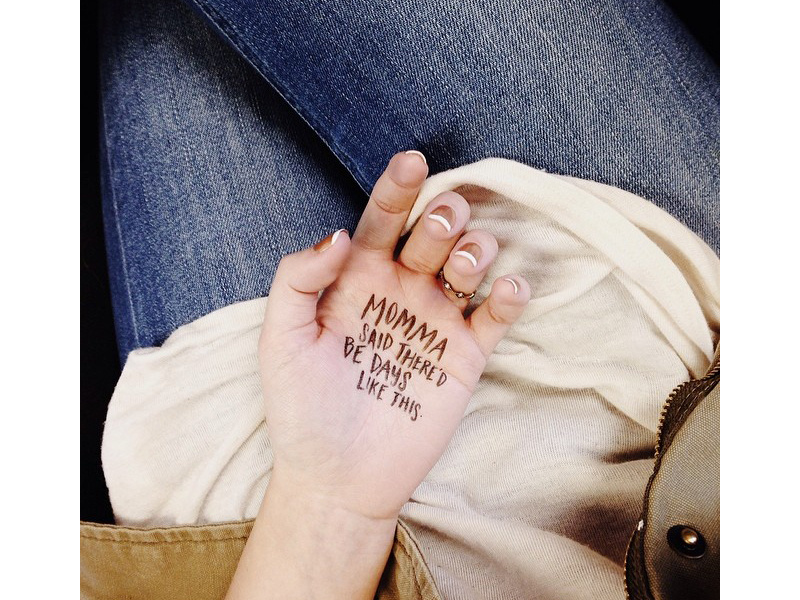 MOMMA
SAID THERE'D
BE DAYS
LIKE THIS.